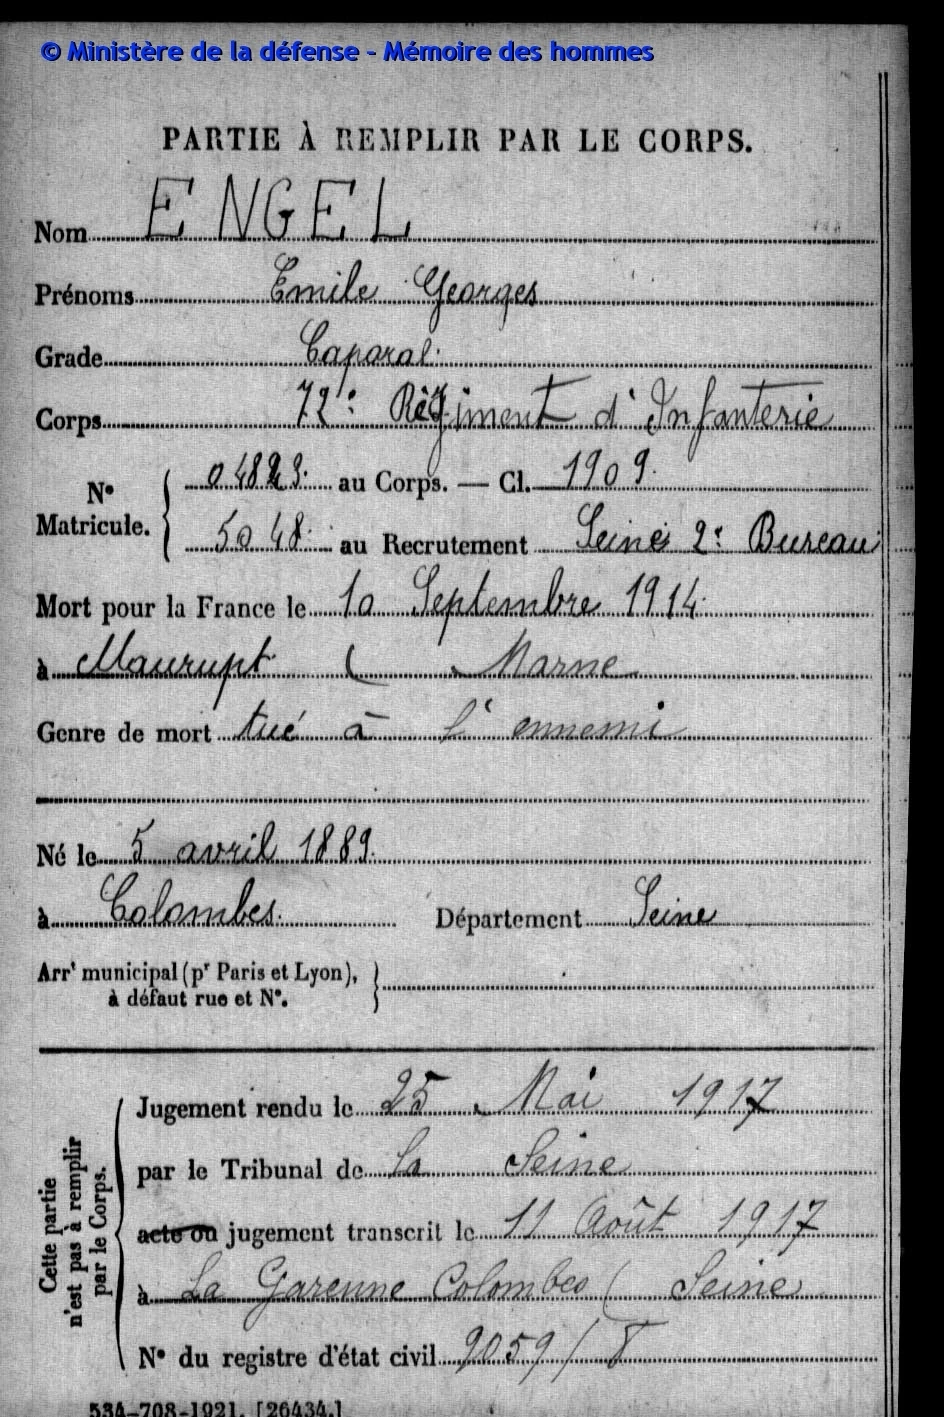 © Ministère de la défense - Mémoire des hommes
PARTIE À REMPLIR PAR LE CORPS.
Nom ENGEL
Prénoms Emile Georges
Grade Caporal
Corps 72e Régiment d'Infanterie
N° Matricule. 04823 au Corps. — Cl. 1909
5048 au Recrutement Seine 2e Bureau
Mort pour la France le 10 Septembre 1914
à Maurupt ( Marne
Genre de mort tué à l'ennemi
Né le 5 avril 1889
à Colombes Département Seine
Arrt municipal (pr Paris et Lyon),
à défaut rue et N°.
Cette partie n'est pas à remplir par le Corps.
Jugement rendu le 25 Mai 1917
par le Tribunal de la Seine
acte ou jugement transcrit le 11 Août 1917
à La Garenne Colombes ( Seine
N° du registre d'état civil 9059/8
534-708-1921. [26434.]